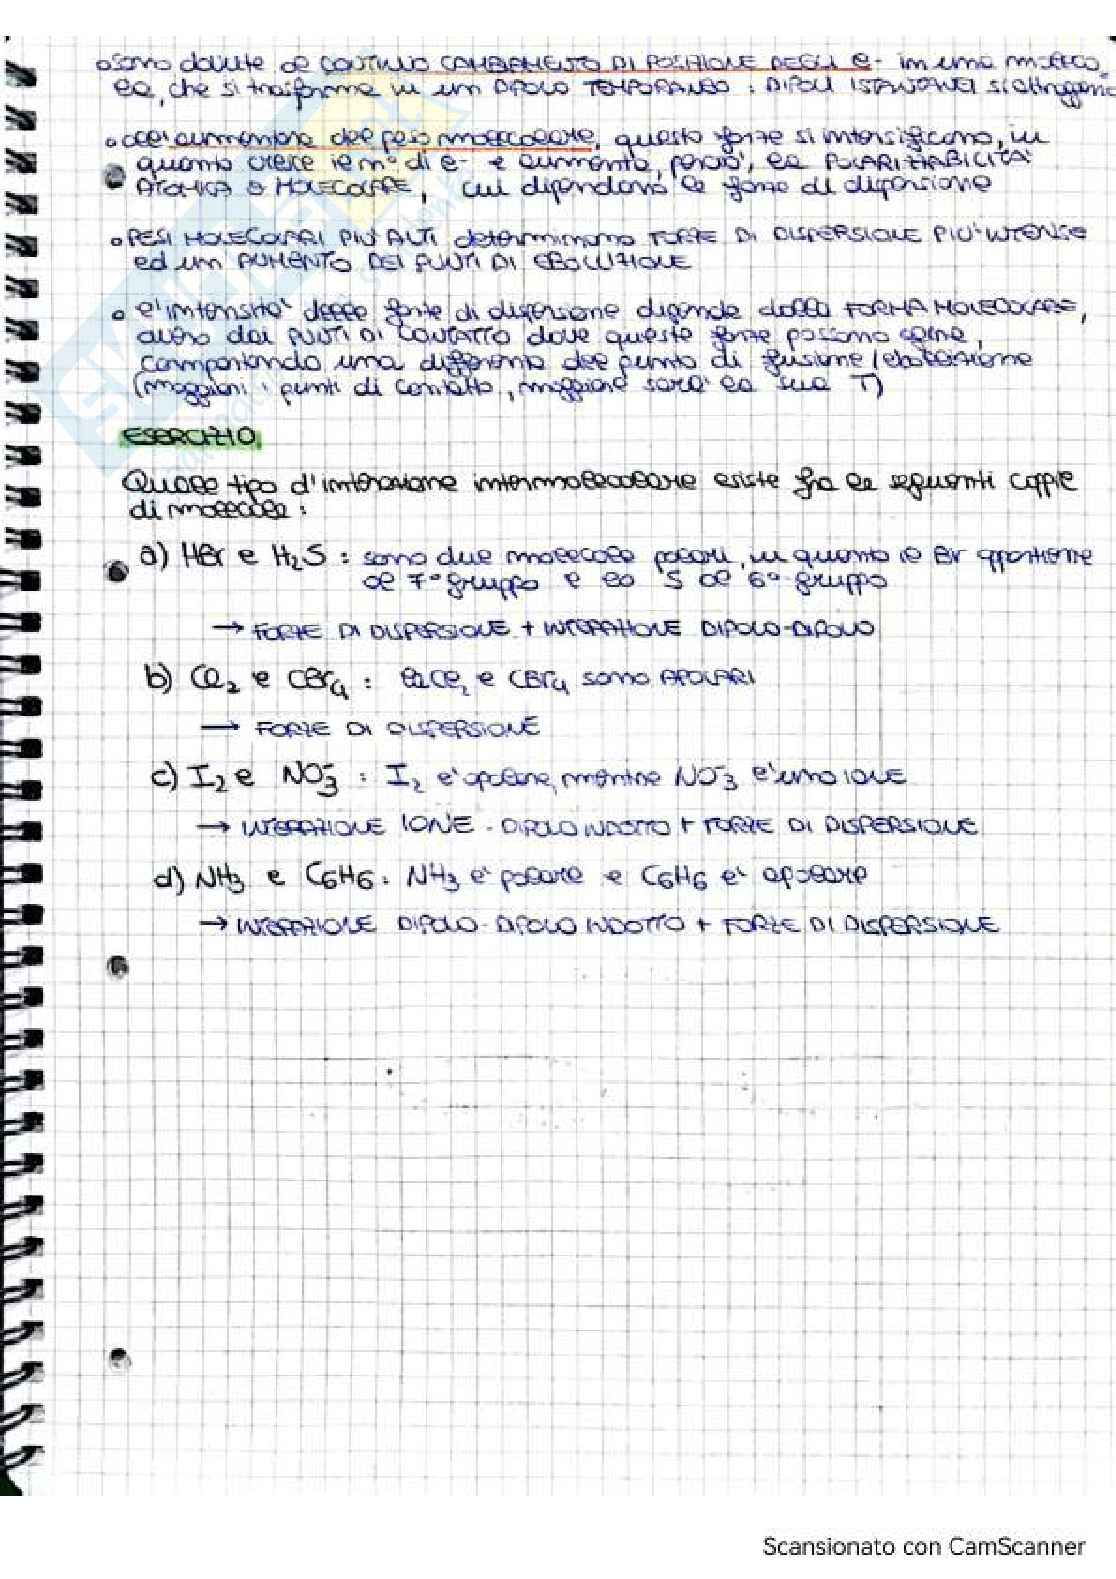 • sono dovute al CONTINUO CAMBIAMENTO DI POSIZIONE DEGLI e- in una moleco
la, che si trasforma in un DIPOLO TEMPORANEO : DIPOLI ISTANTANEI si attraggono
• all'aumentare del peso molecolare, queste forze si intensificano, in
quanto cresce il n° di e- e aumenta, perciò, la POLARIZZABILITÀ
ATOMICA O MOLECOLARE, cui dipendono le forze di dispersione
• PESI MOLECOLARI PIÙ ALTI determinano FORZE DI DISPERSIONE PIÙ INTENSE
ed un AUMENTO DEI PUNTI DI EBOLLIZIONE
• l'intensità delle forze di dispersione dipende dalla FORMA MOLECOLARE,
ovvero dai PUNTI DI CONTATTO dove queste forze possono agire,
comportando una differenza del punto di fusione / ebollizione
(maggiori i punti di contatto, maggiore sarà la sua T)
ESERCIZIO
Quale tipo d'interazione intermolecolare esiste fra le seguenti coppie
di molecole :
a) HBr e H2S : sono due molecole polari, in quanto il Br appartiene
al 7° gruppo e lo S al 6° gruppo
→ FORZE DI DISPERSIONE + INTERAZIONE DIPOLO-DIPOLO
b) Cl2 e CBr4 : Cl2 e CBr4 sono APOLARI
→ FORZE DI DISPERSIONE
c) I2 e NO3- : I2 è apolare, mentre NO3- è uno IONE
→ INTERAZIONE IONE - DIPOLO INDOTTO + FORZE DI DISPERSIONE
d) NH3 e C6H6 : NH3 è polare e C6H6 è apolare
→ INTERAZIONE DIPOLO - DIPOLO INDOTTO + FORZE DI DISPERSIONE
Scansionato con CamScanner